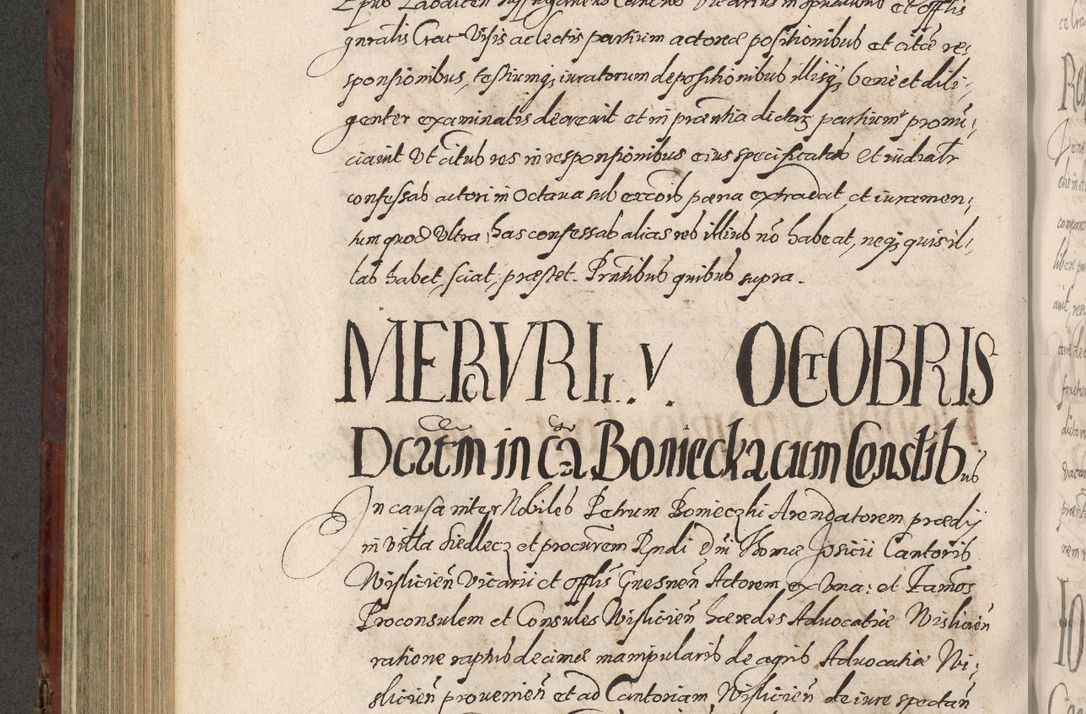 Epus Laodicen Suffraganeus Cancūs Vicarius in spualibus et offlis
gnralis Crac Visis ac lectis partium actorea positionibus et citāe res,
sponsionibus, testiumq, iuratorum depositionibus illisq, bene et dili,
genter examinatis decrevit et in praentia dictar partium pronū,
ciavit Ut citūb res in responsionibus eius specificatas et iudialr
confessas actori in Octava sub excoīs paena extradat et iuramen,
tum quod Ultra has confessas alias res illius nō habeat, neq, quis il,
las habet, sciat, praestet. Prntibus quibus supra.
MERCVRII. V. OCTOBRIS
Dcrtm in cā Boniecka cum Consūbus
In causa inter Nobiles Petrum Bonieczki Arendatorem praedij
in Villa Siedlecz et procurem Rndi dni Thomae Josicii Cantoris
Wislicieñ Vicarii et offlis Gnesneñ Actorem ex Una: et Famōs
Proconsulem et Consules Wislicieñ haeredes Advocatiae Wislicieñ
ratione raptus decimae manipularis de agris Advocatiae Wi,
slicieñ provenieñ et ad Cantoriam Wislicieñ de iure spectañ